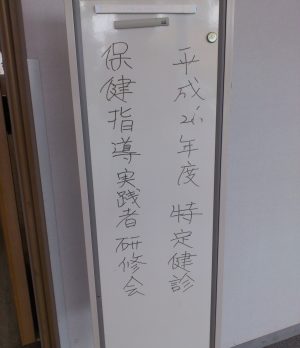 平成26年度 特定健診
保健指導実践者研修会